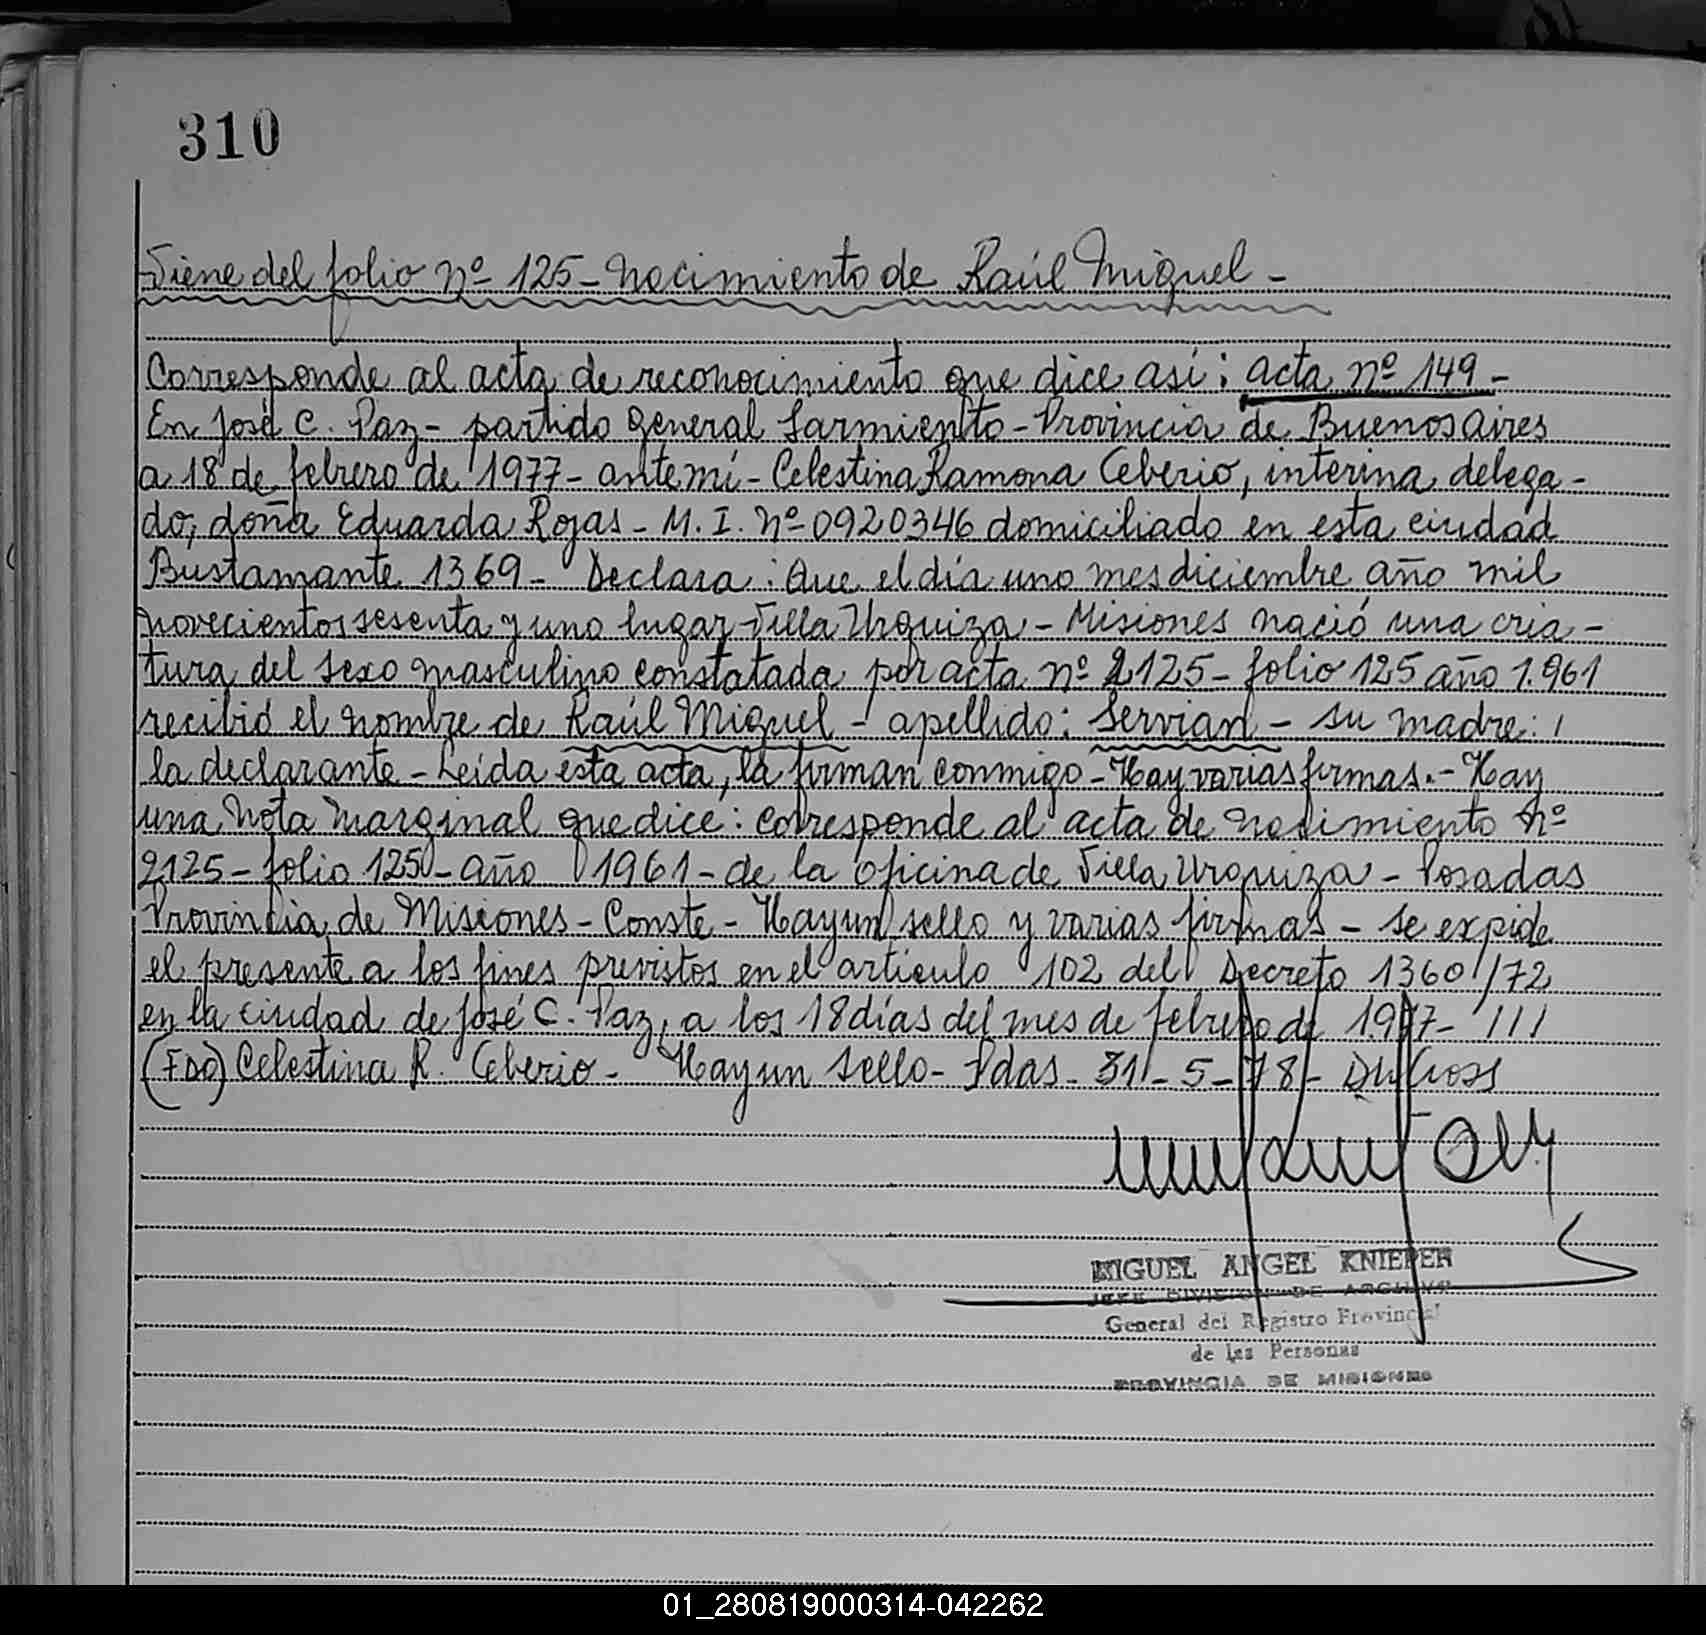 310
Viene del folio nº 125 - Nacimiento de Raúl Miguel -
Corresponde al acta de reconocimiento que dice así: acta nº 149 -
En José C. Paz - partido General Sarmiento - Provincia de Buenos Aires
a 18 de febrero de 1977 - ante mí - Celestina Ramona Ceberio, interina delega-
do, doña Eduarda Rojas - M. I. Nº 0920346 domiciliado en esta ciudad
Bustamante 1369 - Declara: Que el día uno mes diciembre año mil
novecientos sesenta y uno lugar Villa Urquiza - Misiones nació una cria-
tura del sexo masculino constatada por acta nº 2125 - folio 125 año 1.961
recibió el nombre de Raúl Miguel - apellido: Servian - su madre:
la declarante - Leída esta acta, la firman conmigo - Hay varias firmas. - Hay
una Nota Marginal que dice: Corresponde al acta de nacimiento Nº
2125 - folio 125 - año 1961 - de la oficina de Villa Urquiza - Posadas
Provincia de Misiones - Conste - Hay un sello y varias firmas - Se expide
el presente a los fines previstos en el artículo 102 del Decreto 1360/72
en la ciudad de José C. Paz, a los 18 días del mes de febrero de 1.977 - ///
(FDO) Celestina R. Ceberio - Hay un sello - Pdas - 31 - 5 - 78 -
MIGUEL ANGEL KNIEPER
JEFE DIVISION DE ARCHIVO
General del Registro Provincial
de las Personas
PROVINCIA DE MISIONES
01_280819000314-042262